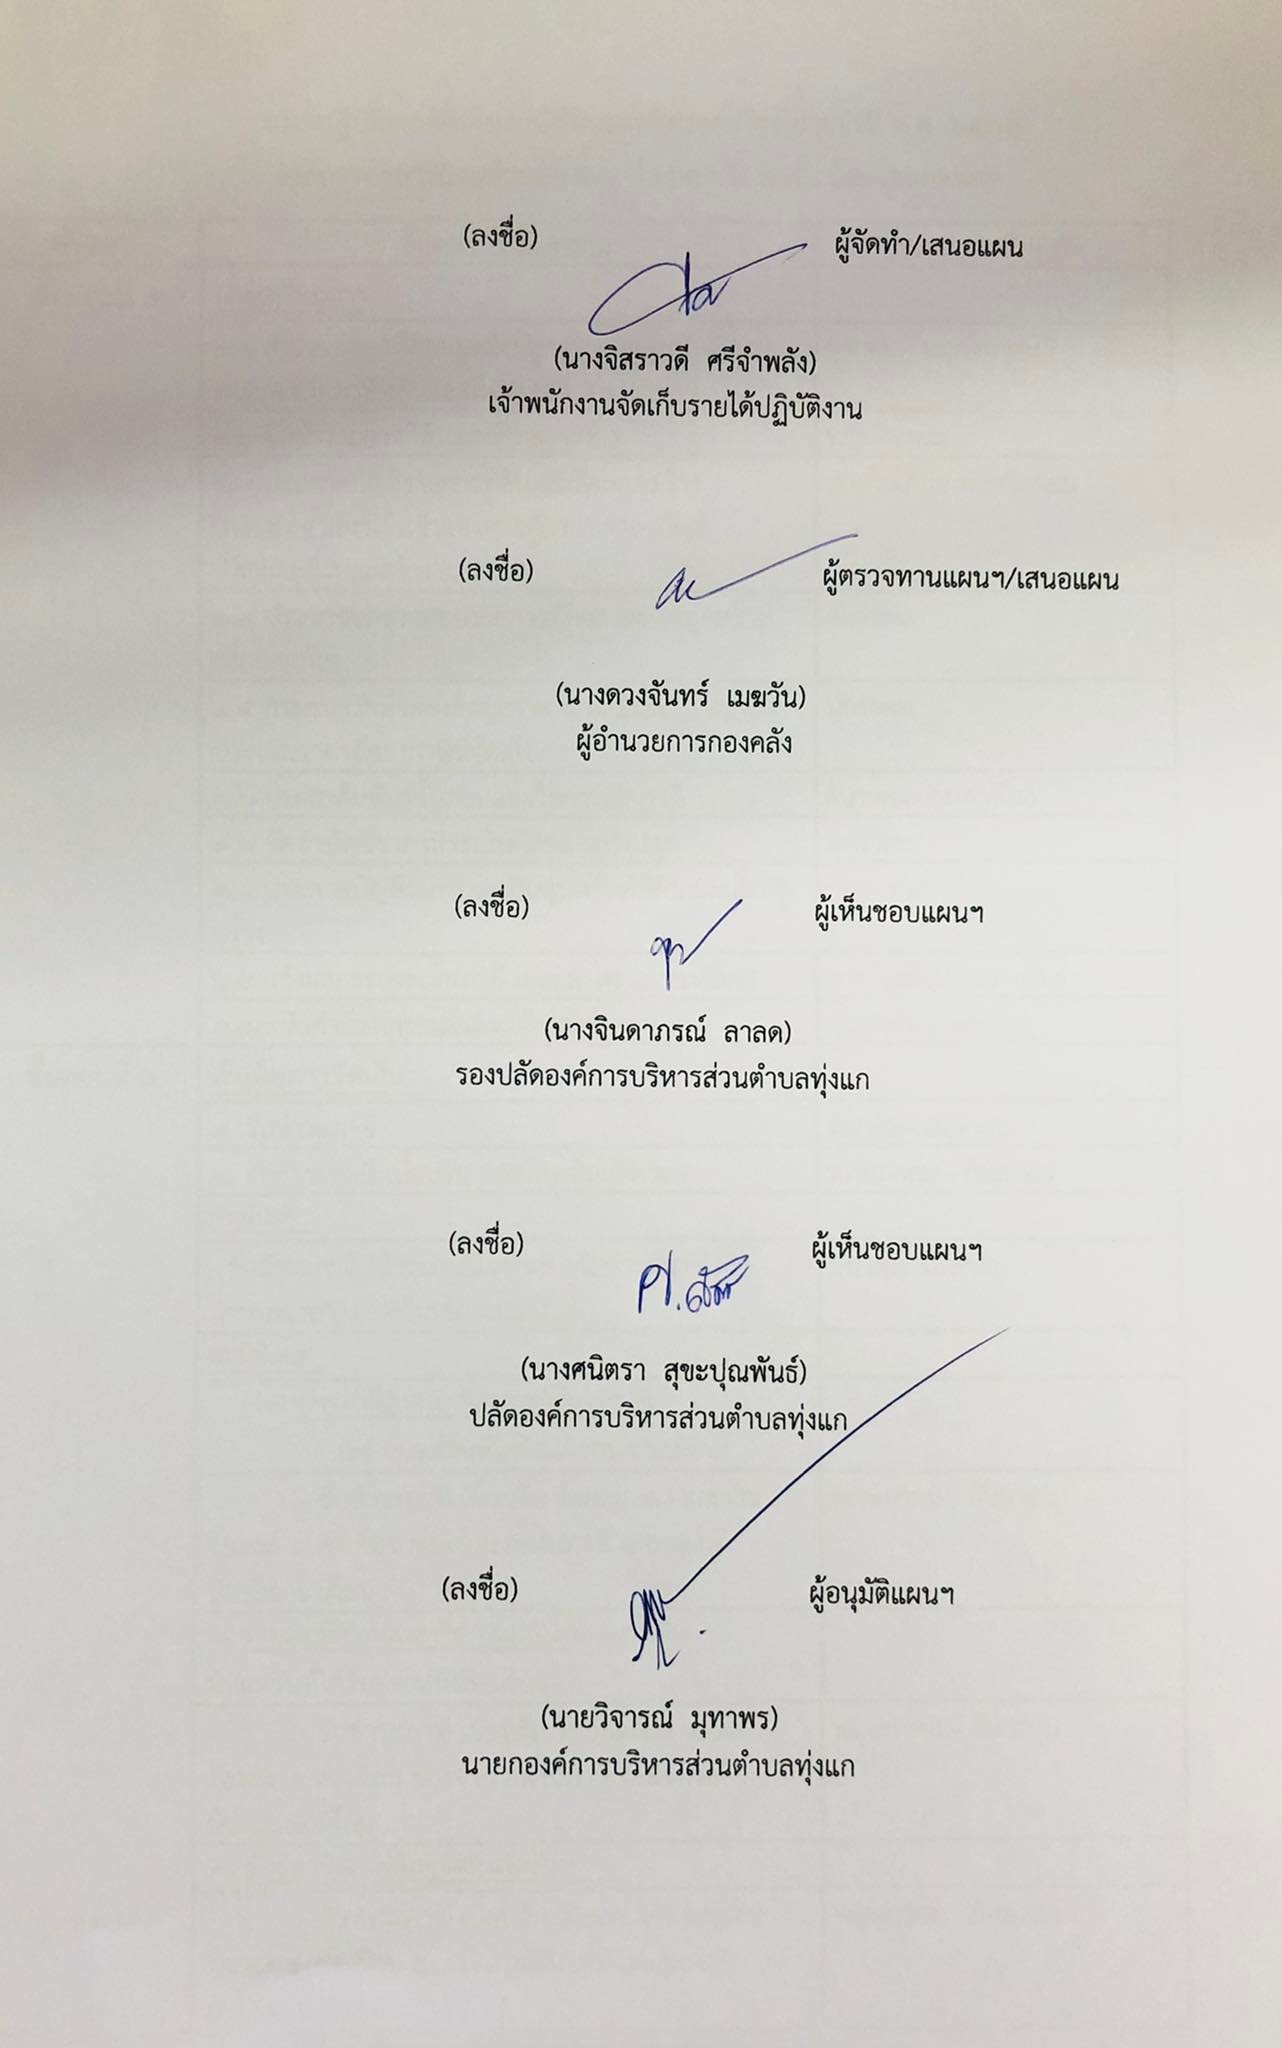 (ลงชื่อ) ผู้จัดทำ/เสนอแผน
(นางจิสราวดี ศรีจำพลัง)
เจ้าพนักงานจัดเก็บรายได้ปฏิบัติงาน
(ลงชื่อ) ผู้ตรวจทานแผนฯ/เสนอแผน
(นางดวงจันทร์ เมฆวัน)
ผู้อำนวยการกองคลัง
(ลงชื่อ) ผู้เห็นชอบแผนฯ
(นางจินดาภรณ์ ลาลด)
รองปลัดองค์การบริหารส่วนตำบลทุ่งแก
(ลงชื่อ) ผู้เห็นชอบแผนฯ
(นางศนิตรา สุขะปุณพันธ์)
ปลัดองค์การบริหารส่วนตำบลทุ่งแก
(ลงชื่อ) ผู้อนุมัติแผนฯ
(นายวิจารณ์ มุทาพร)
นายกองค์การบริหารส่วนตำบลทุ่งแก